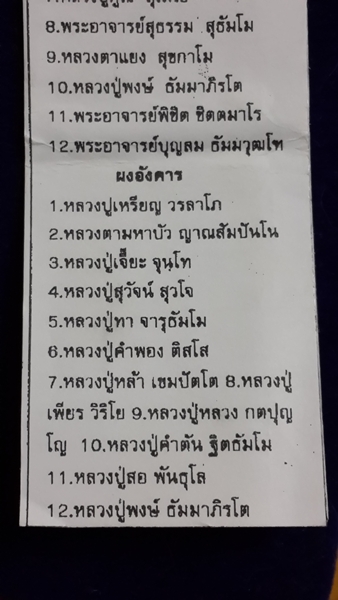 8.พระอาจารย์สุธรรม สุธัมโม
9.หลวงตาแยง สุขกาโม
10.หลวงปู่พงษ์ ธัมมาภิรโต
11.พระอาจารย์พิชิต ชิตตมาโร
12.พระอาจารย์บุญลม ธัมมวุฒโท
ผงอังคาร
1.หลวงปู่เหรียญ วรลาโภ
2.หลวงตามหาบัว ญาณสัมปันโน
3.หลวงปู่เจี๊ยะ จุนฺโท
4.หลวงปู่สุวัจน์ สุวโจ
5.หลวงปู่ทา จารุธัมโม
6.หลวงปู่คำพอง ติสโส
7.หลวงปู่หล้า เขมปัตโต 8.หลวงปู่
เพียร วิริโย 9.หลวงปู่หลวง กตปุญ
โญ 10.หลวงปู่คำตัน ฐิตธัมโม
11.หลวงปู่สอ พันธุโล
12.หลวงปู่พงษ์ ธัมมาภิรโต